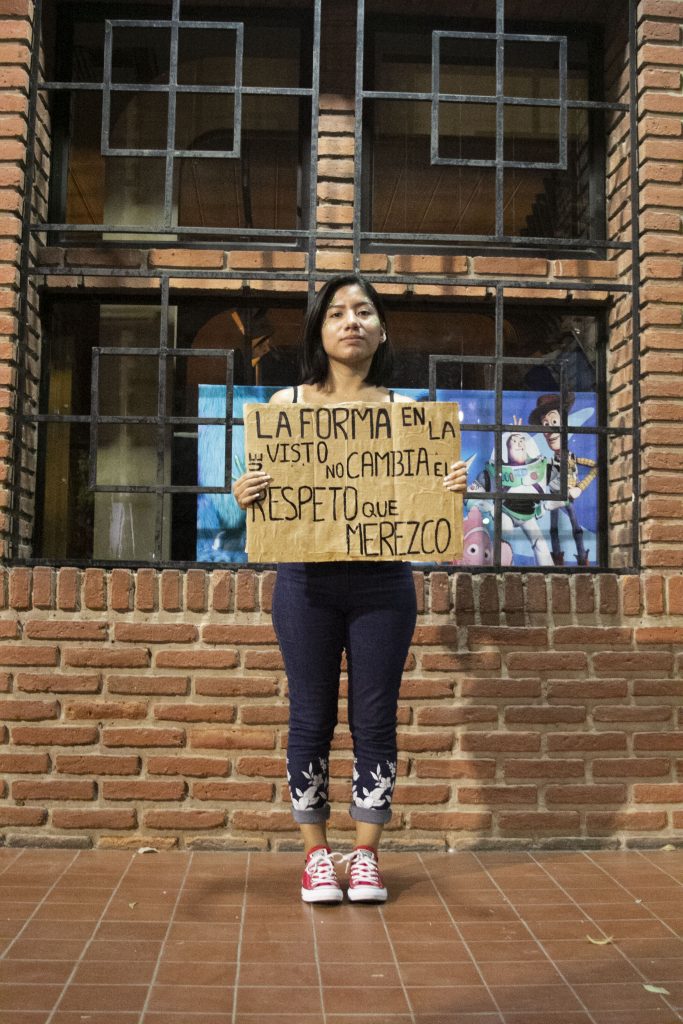 LA FORMA EN LA
QUE VISTO NO CAMBIA EL
RESPETO QUE
MEREZCO